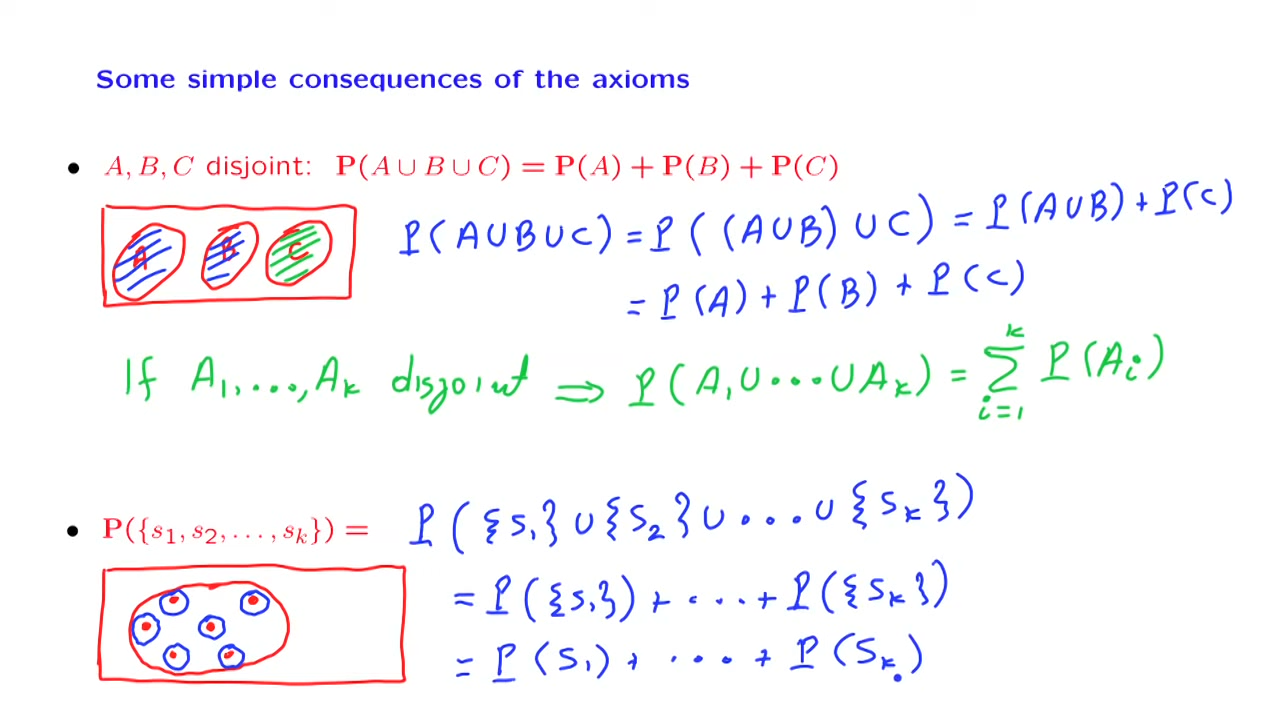 Some simple consequences of the axioms
• A, B, C disjoint: P(A ∪ B ∪ C) = P(A) + P(B) + P(C)
A B C
P(A∪B∪C) = P((A∪B) ∪ C) = P(A∪B) + P(C)
= P(A) + P(B) + P(C)
If A₁,...,Aₖ disjoint ⇒ P(A₁∪···∪Aₖ) = ∑ᵢ₌₁ᵏ P(Aᵢ)
• P({s₁, s₂, . . . , sₖ}) = P({s₁}∪{s₂}∪...∪{sₖ})
= P({s₁}) + ... + P({sₖ})
= P(s₁) + ... + P(sₖ)